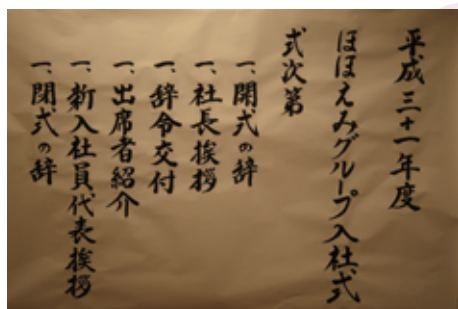 平成三十一年度
ほほえみグループ入社式
式次第
一、開式の辞
一、社長挨拶
一、辞令交付
一、出席者紹介
一、新入社員代表挨拶
一、閉式の辞